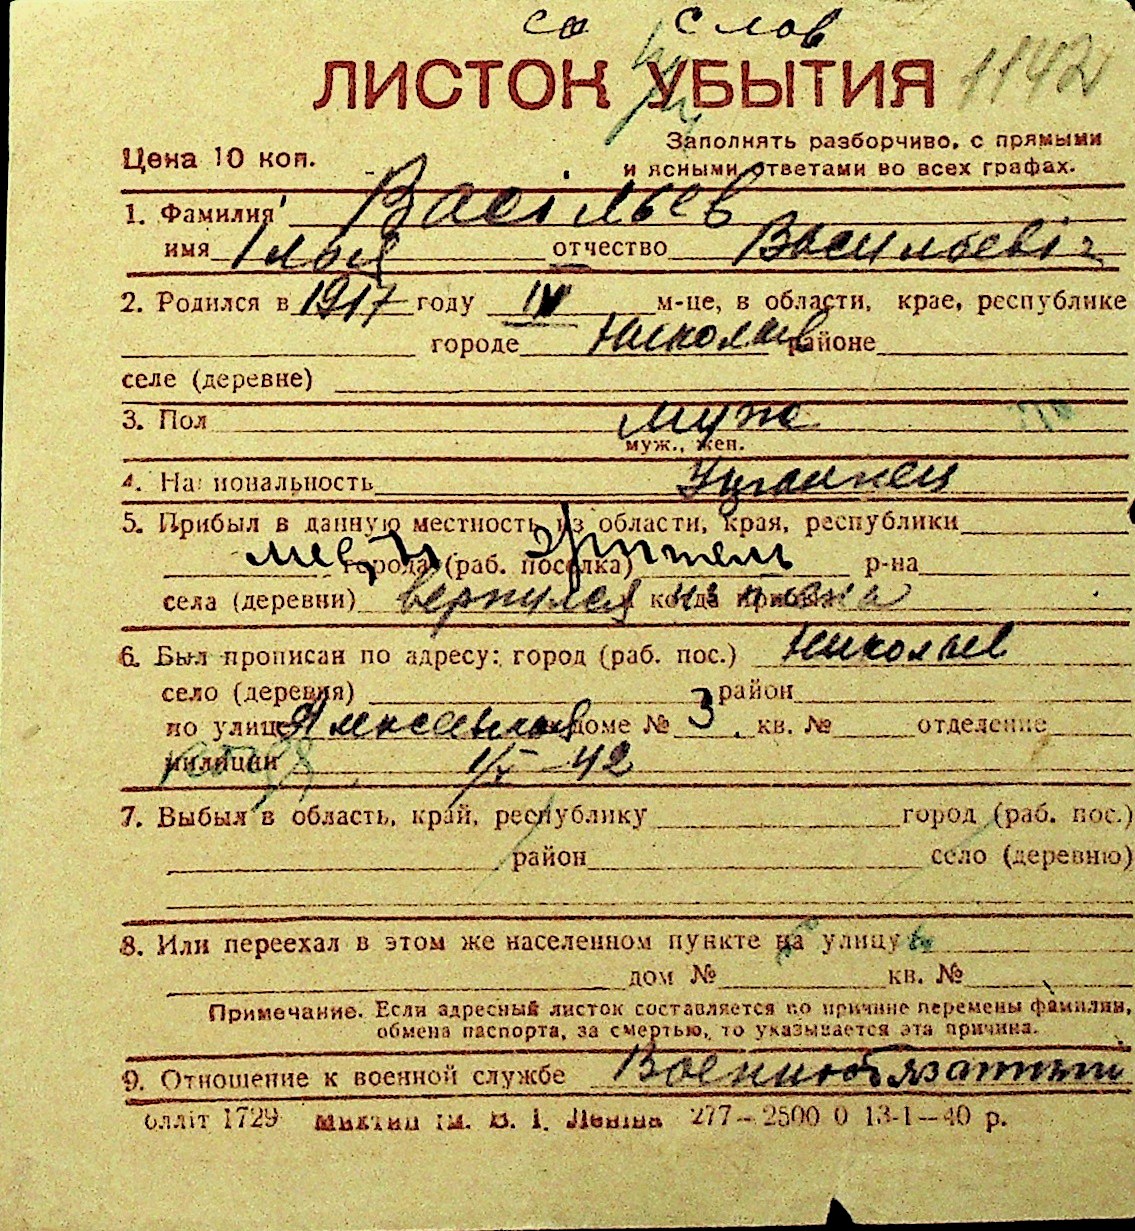 со слов
ЛИСТОК УБЫТИЯ 1142
Цена 10 коп.
Заполнять разборчиво, с прямыми
и ясными ответами во всех графах.
1. Фамилия Васільев
имя Ілья отчество Васильевіч
2. Родился в 1917 году IV м-це, в области, крае, республике
городе Николаев районе
селе (деревне)
3. Пол муж
муж., жен.
4. Национальность
5. Прибыл в данную местность из области, края, республики
мест житель
города (раб. поселка) р-на
села (деревни) вернился из плена
6. Был прописан по адресу: город (раб. пос.) Николаев
село (деревня) район
по улице доме № 3, кв. № отделение
милиции 1/X-42
7. Выбыл в область, край, республику город (раб. пос.)
район село (деревню)
8. Или переехал в этом же населенном пункте на улицу
дом № кв. №
Примечание. Если адресный листок составляется по причине перемены фамилии,
обмена паспорта, за смертью, то указывается эта причина.
9. Отношение к военной службе
олліт 1729 ім. В. І. Леніна 277—2500 0 13-1—40 р.